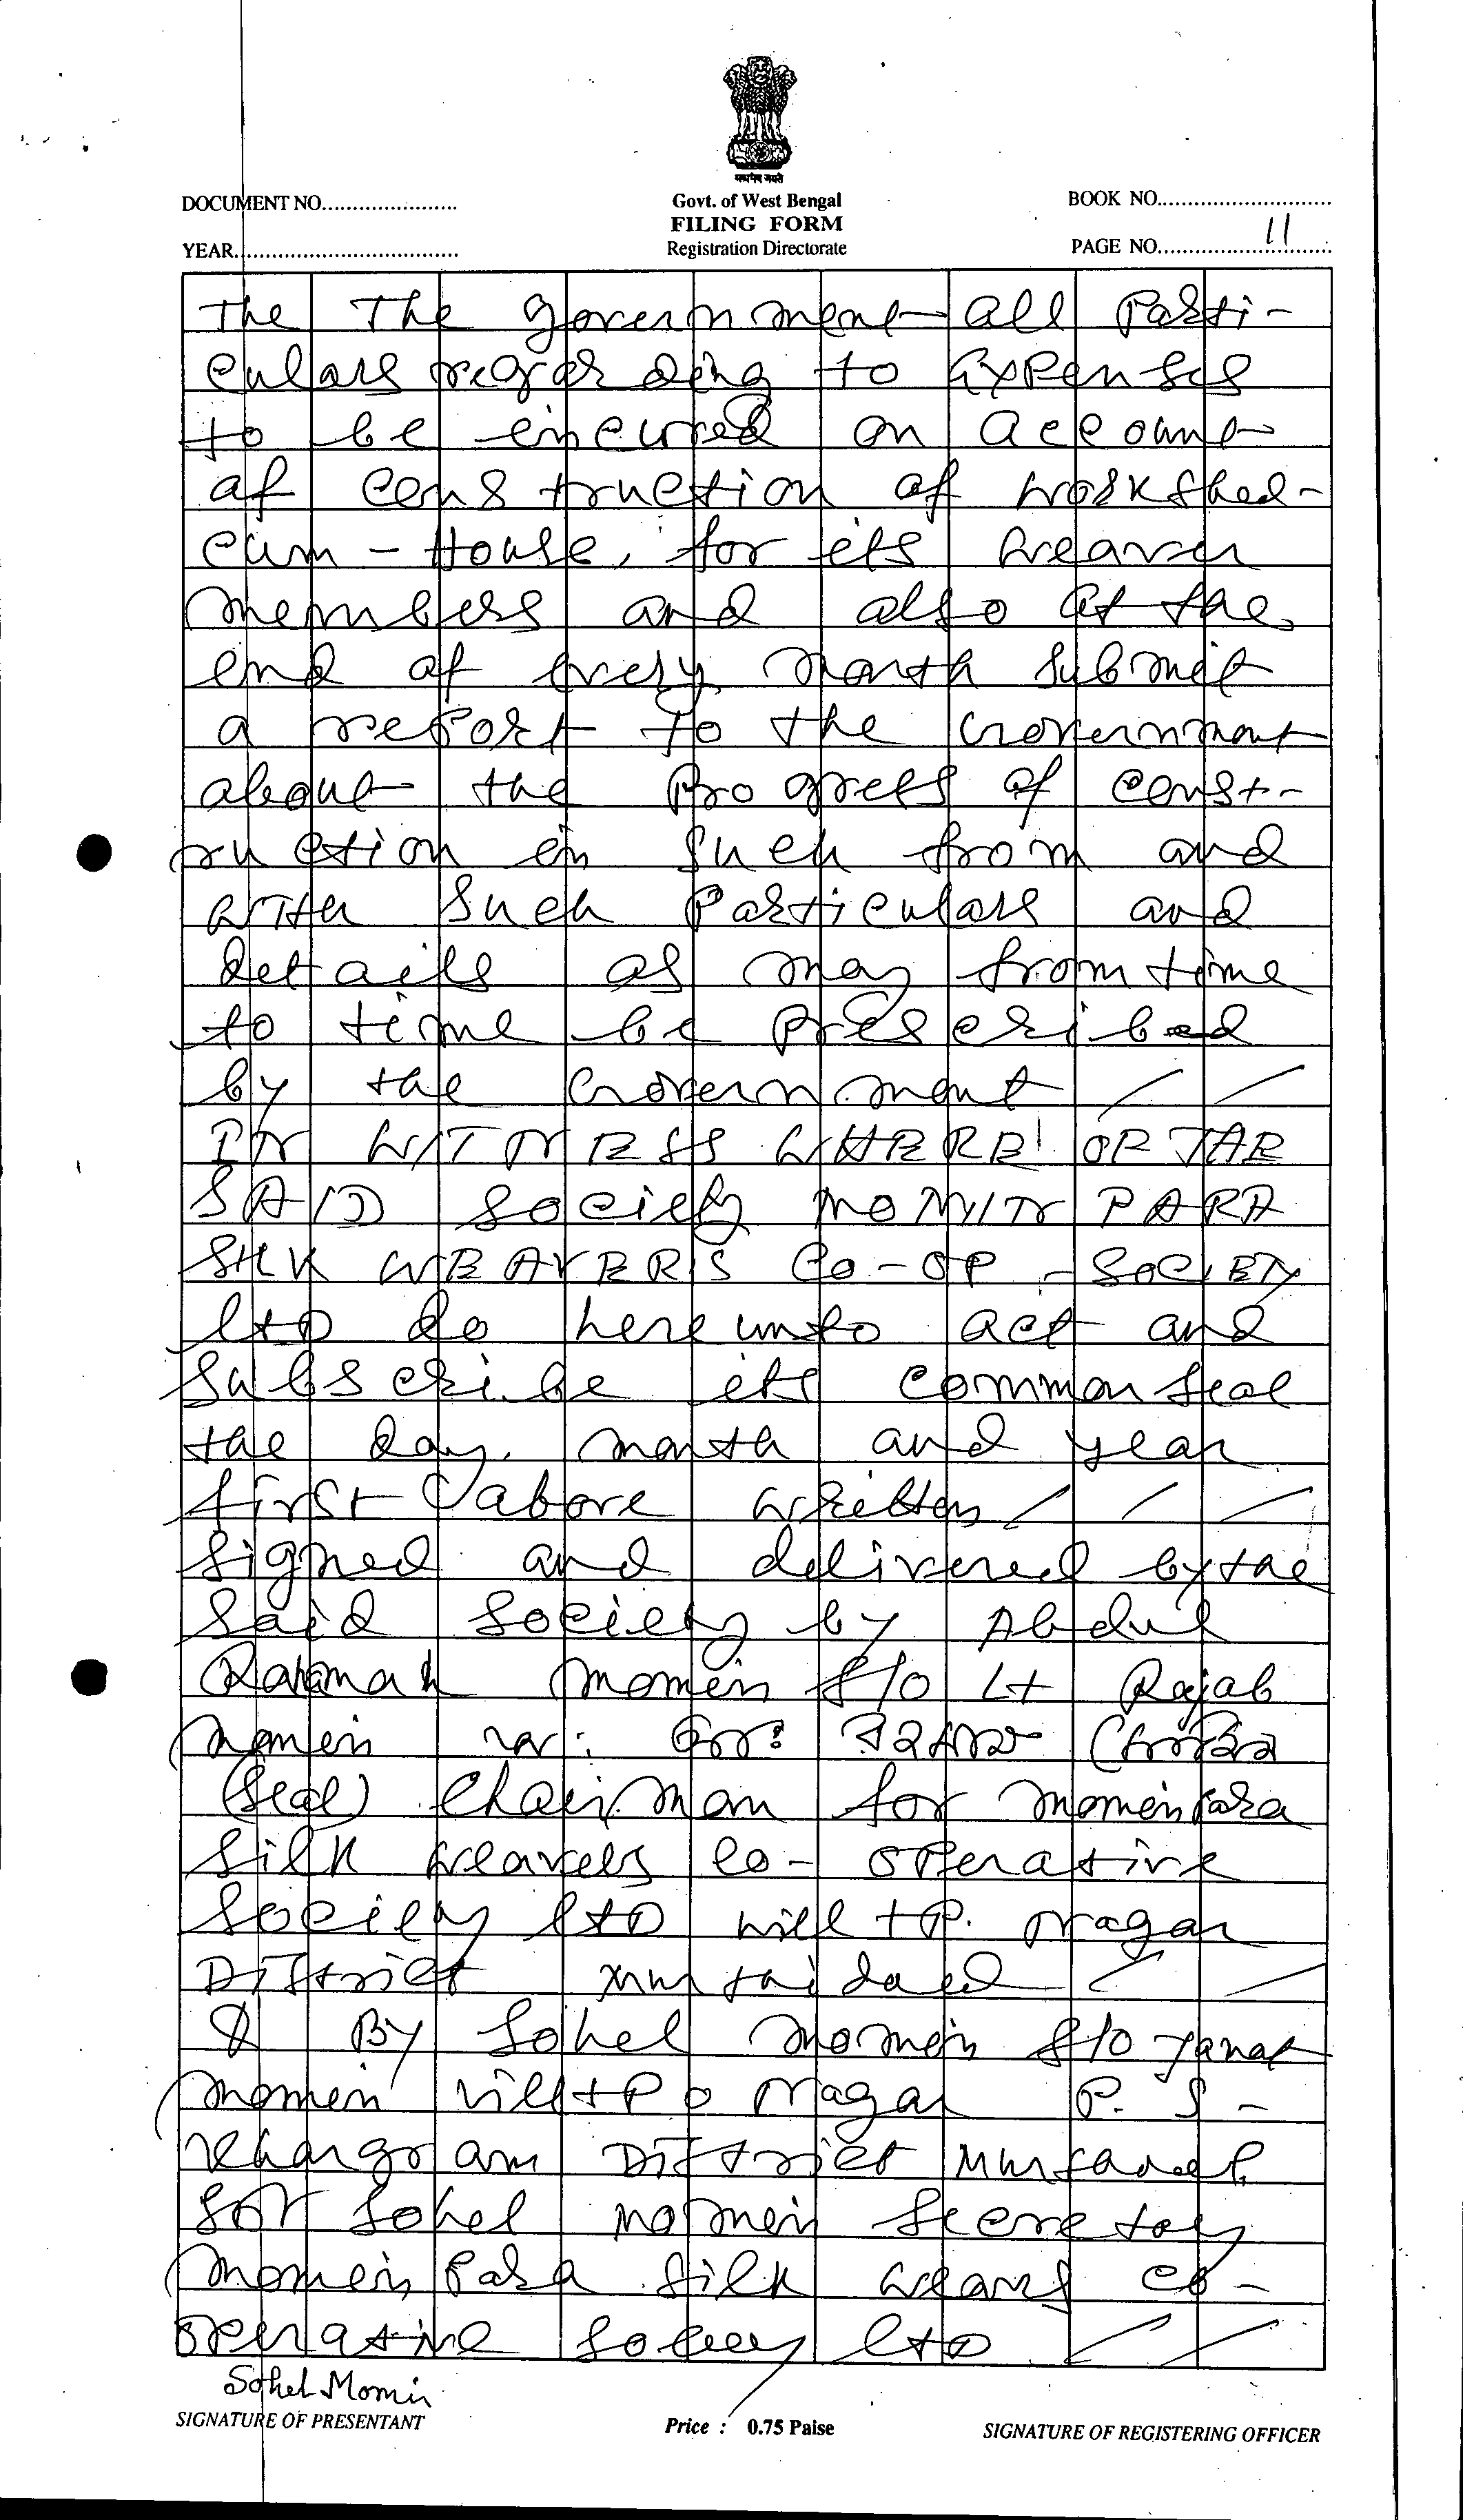 सत्यमेव जयते
DOCUMENT NO......................
Govt. of West Bengal
BOOK NO............................
FILING FORM
YEAR....................................
Registration Directorate
PAGE NO. 11
The The government all Parti-
culars regarding to Expenses
to be incurred on account
of construction of workshed-
cum - House, for its weaver
members and also at the
end of every month submit
a report to the Government
about the Progress of const-
ruction in such from and
with such Particulars and
details as may from time
to time be prescribed
by the Government //
IN WITNESS WHERE OF THE
SAID Society MOMIN PARA
SILK WEAVERS CO-OP - SOCIETY
LTD do hereunto act and
subscribe its common seal
the day, month and year
first above written / / /
signed and delivered by the
said Society by Abdul
Rahman momin S/O Lt Rajab
momin
(seal) Chairman for mominpara
silk weavers co- operative
Society LTD vill + P. Nagar
District Murshidabad / /
& By Sohel momin S/O
momin vill + P o Nagar P. S -
Khargram District
Sohel momin Secretary
momin Para silk weavers co-
operative Society LTD //
Sohel Momin
SIGNATURE OF PRESENTANT
Price : 0.75 Paise
SIGNATURE OF REGISTERING OFFICER